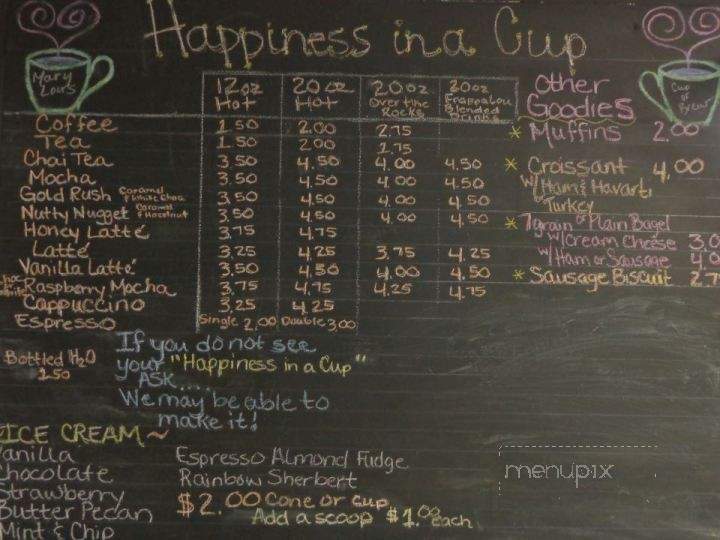 Happiness in a Cup
Mary Lou's
Cup of
12oz Hot 20oz Hot 20oz Over the Rocks 20oz Frappalou Blended Drinks
Coffee 1.50 2.00 2.75
Tea 1.50 2.00 1.75
Chai Tea 3.50 4.50 4.00 4.50
Mocha 3.50 4.50 4.00 4.50
Gold Rush Caramel & White Choc 3.50 4.50 4.00 4.50
Nutty Nugget Caramel & Hazelnut 3.50 4.50 4.00 4.50
Honey Latté 3.75 4.75
Latté 3.25 4.25 3.75 4.25
Vanilla Latté 3.50 4.50 4.00 4.50
Raspberry Mocha 3.75 4.75 4.25 4.75
Cappuccino 3.25 4.25
Espresso Single 2.00 Double 3.00
Bottled H2O
1.50
If you do not see
your "Happiness in a Cup"
ASK.....
We may be able to
make it!
Other
Goodies
* Muffins 2.00
* Croissant 4.00
w/ Ham & Havarti
Turkey
* 7 grain or Plain Bagel
w/ Cream Cheese 3.0
w/ Ham or Sausage 4.0
* Sausage Biscuit 2.7
ICE CREAM~
Vanilla
Chocolate
Strawberry
Butter Pecan
Mint & Chip
Espresso Almond Fudge
Rainbow Sherbert
$2.00 Cone or cup
Add a scoop $1.00 each
menupix